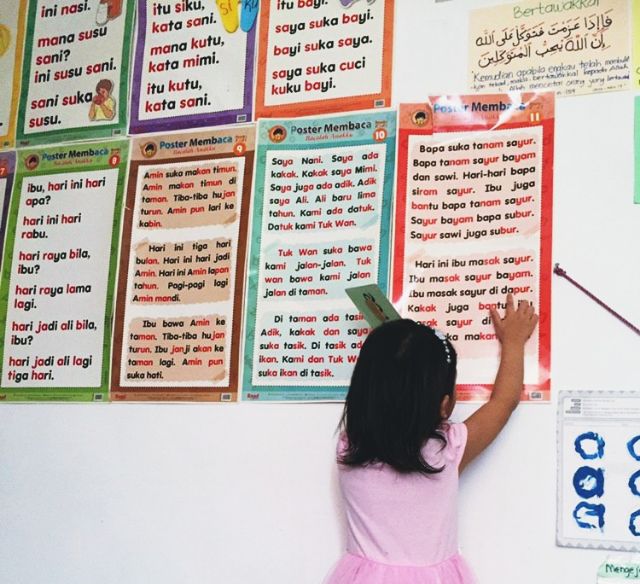 ini nasi.
mana susu
sani?
ini susu sani.
sani suka
susu.
itu siku,
kata sani.
mana kutu,
kata mimi.
itu kutu,
kata sani.
itu bayi.
saya suka bayi.
bayi suka saya.
saya suka cuci
kuku bayi.
Bertawakkal
فَإِذَا عَزَمْتَ فَتَوَكَّلْ عَلَى اللَّهِ
إِنَّ اللَّهَ يُحِبُّ الْمُتَوَكِّلِينَ
"Kemudian apabila engkau telah membulat
7
Poster Membaca
Bacalah Anakku
8
ibu, hari ini hari
apa?
hari ini hari
rabu.
hari raya bila,
ibu?
hari raya lama
lagi.
hari jadi ali bila,
ibu?
hari jadi ali lagi
tiga hari.
Poster Membaca
Bacalah Anakku
9
Amin suka makan timun.
Amin makan timun di
taman. Tiba-tiba hujan
turun. Amin pun lari ke
kabin.
Hari ini tiga hari
bulan. Hari ini hari jadi
Amin. Hari ini Amin lapan
tahun. Pagi-pagi lagi
Amin mandi.
Ibu bawa Amin ke
taman. Tiba-tiba hujan
turun. Ibu janji akan ke
taman lagi. Amin pun
suka hati.
Poster Membaca
Bacalah Anakku
10
Saya Nani. Saya ada
kakak. Kakak saya Mimi.
Saya juga ada adik. Adik
saya Ali. Ali baru lima
tahun. Kami ada datuk.
Datuk kami Tuk Wan.
Tuk Wan suka bawa
kami jalan-jalan. Tuk
wan bawa kami jalan
jalan di taman.
Di taman ada tasik
Adik, kakak dan saya
suka tasik. Di tasik ad
ikan. Kami dan Tuk W
suka ikan di tasik.
Poster Membaca
11
Bapa suka tanam sayur.
Bapa tanam sayur bayam
dan sawi. Hari-hari bapa
siram sayur. Ibu juga
bantu bapa tanam sayur.
Sayur bayam bapa subur.
Sayur sawi juga subur.
Hari ini ibu masak sayur.
Ibu masak sayur bayam.
Ibu masak sayur di dapur.
Kakak juga bantu
sayur di
ka makan
Mengej